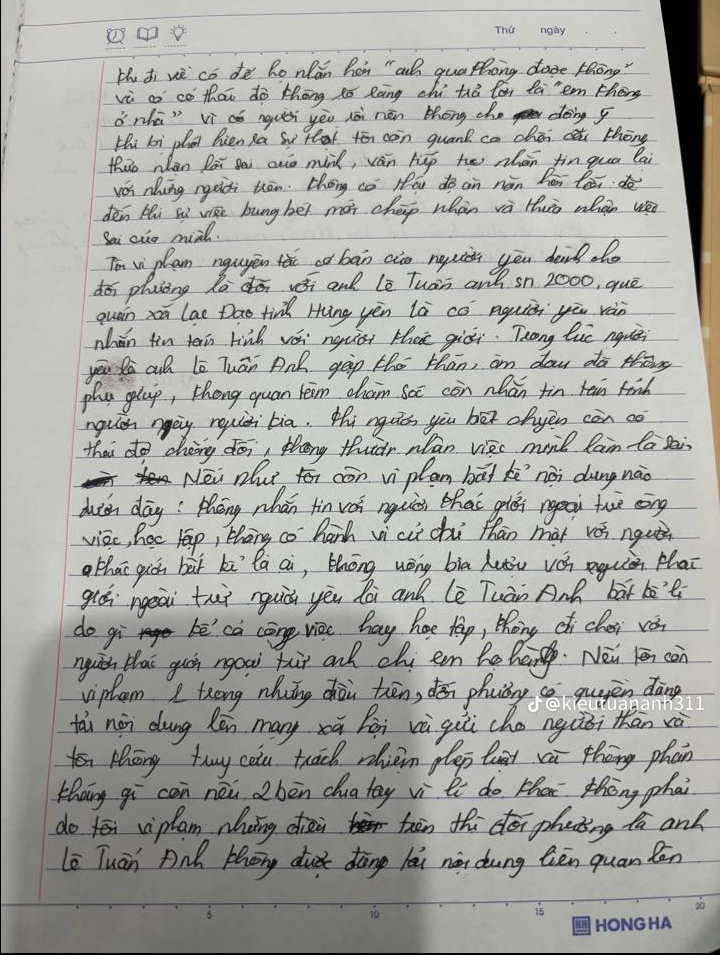 Thứ ngày
khi đi về có để họ nhắn hỏi "anh qua không được không"
và có có thái độ không rõ ràng chỉ trả lời là "em không
ở nhà" vì có người yêu rồi nên không cho đồng ý
khi bị phát hiện ra sự thật tôi còn quanh co chối cãi không
thừa nhận lỗi sai của mình, vẫn tiếp tục nhắn tin qua lại
với những người trên. không có thái độ ăn năn hối lỗi để
đến khi sự việc bung bét mới chấp nhận và thừa nhận việc
sai của mình.
Tôi vi phạm nguyên tắc cơ bản của người yêu dành cho
đối phương là đối với anh Lê Tuấn anh sn 2000, quê
quán xã Lạc Đạo tỉnh Hưng yên là có người yêu vẫn
nhắn tin tán tỉnh với người khác giới. Trong lúc người
yêu là anh Lê Tuấn Anh gặp khó khăn, ốm đau đã không
phụ giúp, không quan tâm chăm sóc còn nhắn tin tán tỉnh
người này người kia. Khi người yêu biết chuyện còn có
thái độ chống đối, không thừa nhận việc mình làm là sai
Nếu như tôi còn vi phạm bất kể nội dung nào
dưới đây: không nhắn tin với người khác giới ngoại trừ công
việc, học tập, không có hành vi cử chỉ thân mật với người
khác giới bất kì là ai, không uống bia rượu với người khác
giới ngoài trừ người yêu là anh Lê Tuấn Anh bất kể lí
do gì kể cả công việc hay học tập, không đi chơi với
người khác giới ngoại trừ anh chị em họ hàng. Nếu tôi còn
vi phạm 1 trong những điều trên, đối phương có quyền đăng
tải nội dung lên mạng xã hội và gửi cho người thân và
tôi không truy cứu trách nhiệm pháp luật và không phản
kháng gì còn nếu 2 bên chia tay vì lí do khác không phải
do tôi vi phạm những điều trên thì đối phương là anh
Lê Tuấn Anh không được đăng tải nội dung liên quan lên
@kieutuananh311
5 10 15 20
HH HONG HA